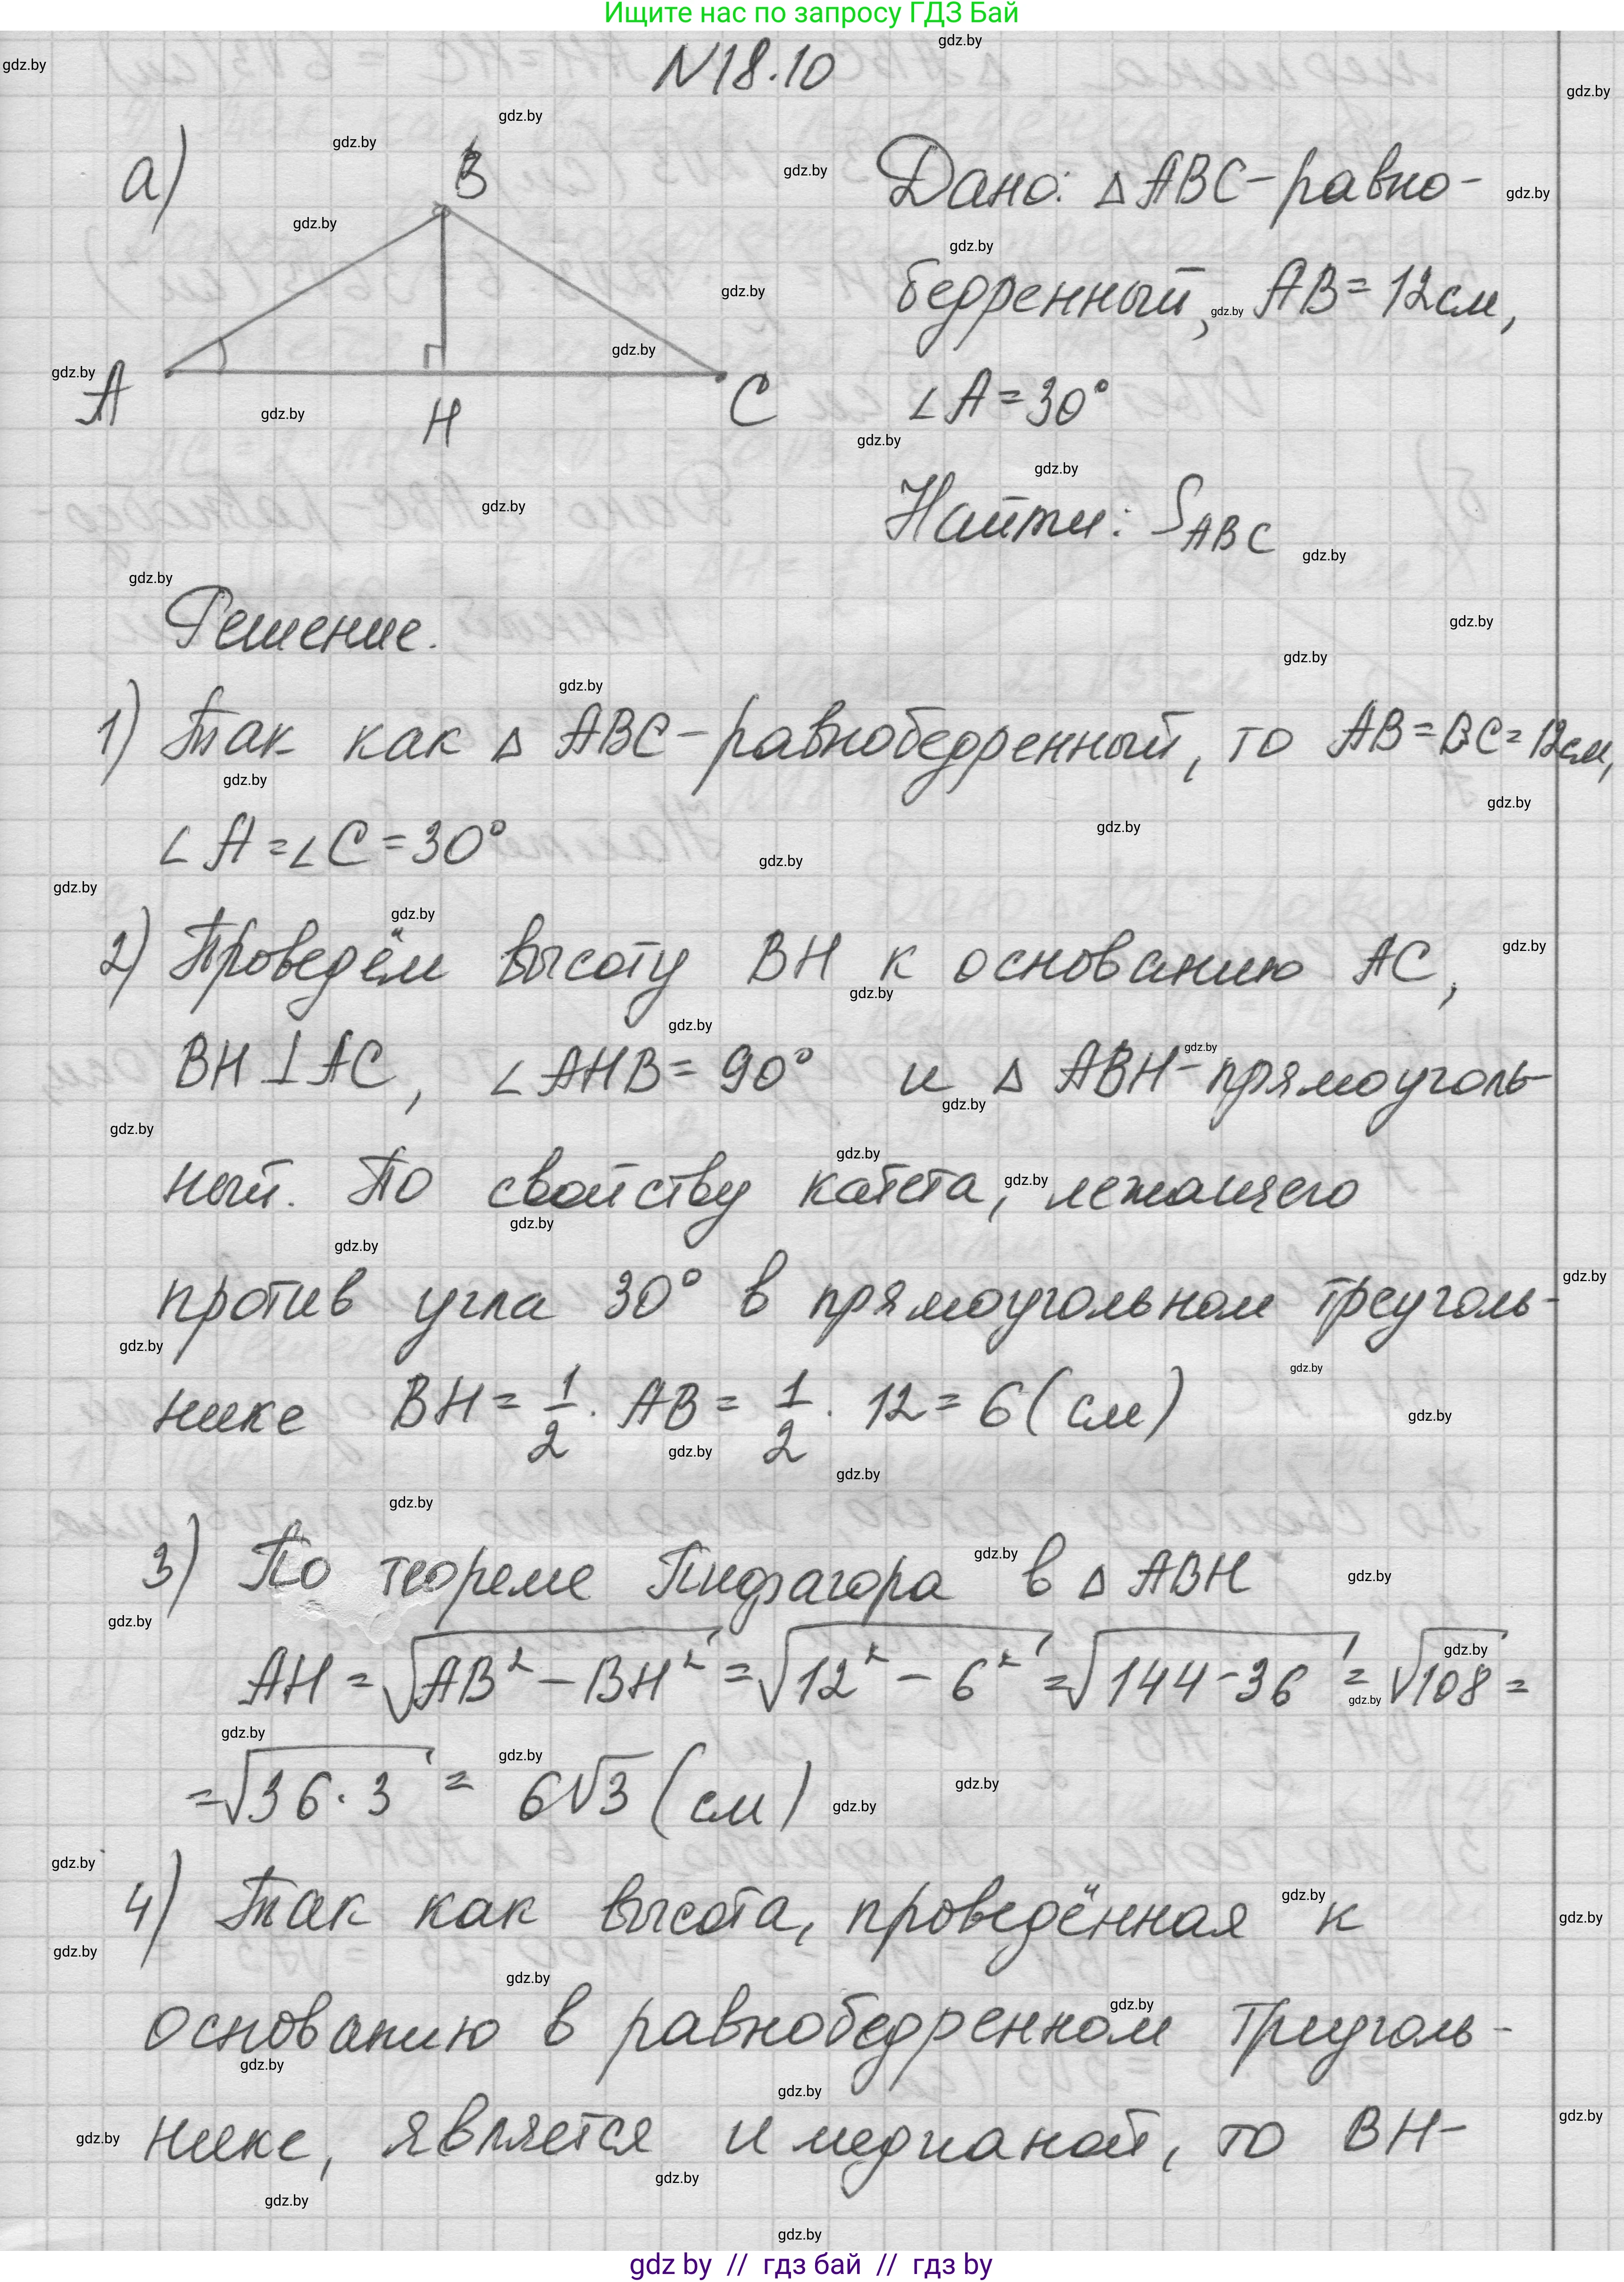 Ищите нас по запросу ГДЗ Бай
N18.10
а)
B
A
H
C
Дано: △ABC-равно-
бедренный, AB=12см,
∠A=30°
Найти: S_ABC
Решение.
1) Так как △ ABC-равнобедренный, то AB=BC=12см,
∠A=∠C=30°
2) Проведём высоту BH к основанию AC,
BH⊥AC, ∠AHB=90° и △ ABH-прямоуголь-
ный. По свойству катета, лежащего
против угла 30° в прямоугольном треуголь-
нике BH=1/2·AB=1/2·12=6(см)
3) По теореме Пифагора в △ABH
AH=√(AB²-BH²)=√(12²-6²)=√(144-36)=√108=
=√(36·3)=6√3(см)
4) Так как высота, проведённая к
основанию в равнобедренном треуголь-
нике, является и медианой, то BH-
gdz by // гдз бай // гдз by